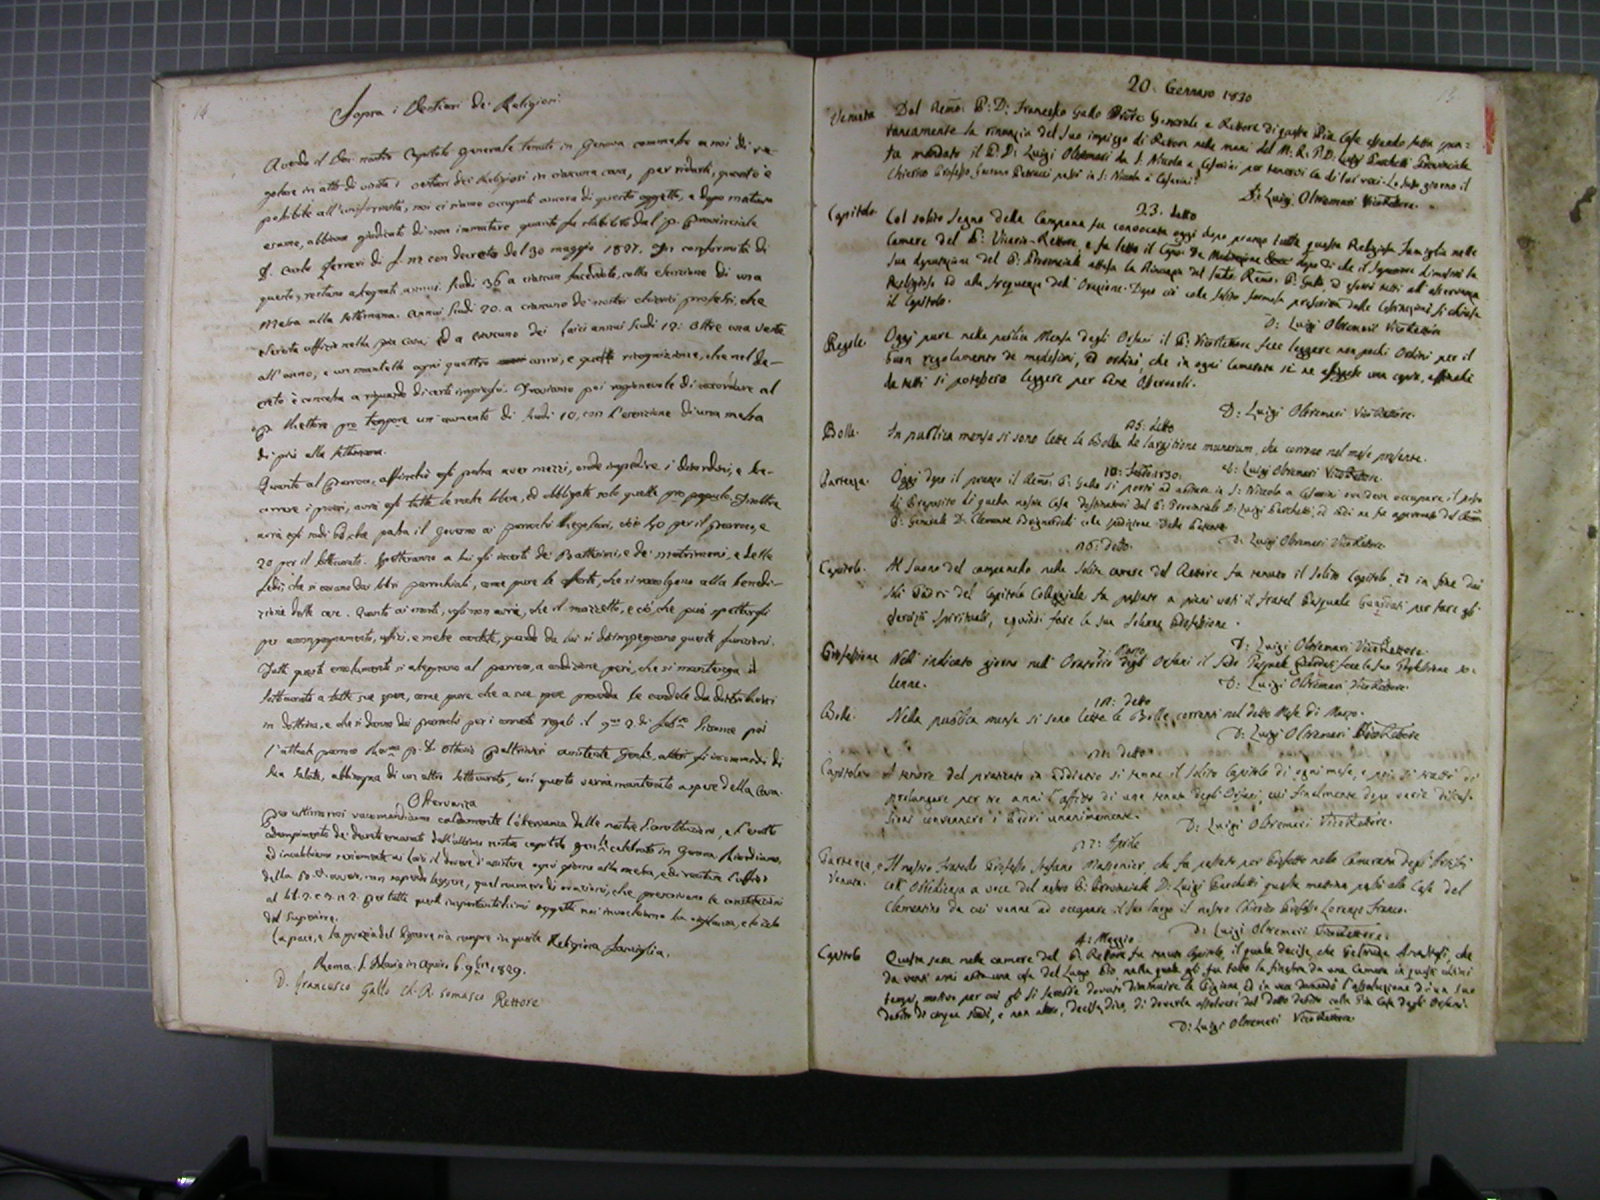 14
Sopra i Vestiari de' Religiosi
Avendo il Ven. nostro Capitolo Generale tenuto in Genova commesso a noi di re-
golare in atto di visita i vestiari dei Religiosi in ciascuna casa, per ridurli, quanto è
possibile all'uniformità, noi ci siamo occupati ancora di questo oggetto, e dopo maturo
esame, abbiamo giudicato di non immutare quanto fu stabilito dal p. Provinciale
D. Carlo Ferreri di f. m. con decreto del 30 maggio 1827. In conformità di
questo, restano assegnati annui scudi 36 a ciascun sacerdote, colla esenzione di una
Messa alla settimana. Annui scudi 20 a ciascuno de' nostri chierici professi, che
esercita offizio nella pia casa, ed a ciascuno dei laici annui scudi 12: oltre una veste
all'anno, e un mantello ogni quattro anni, e quelle ricognizioni, che nel de-
creto è concessa a riguardo di certi impieghi. Troviamo poi ragionevole di accordare al
p. Rettore pro tempore un aumento di scudi 10, con l'esenzione di una messa
di più alla settimana.
Quanto al Parroco, affinchè egli possa aver mezzi, onde impedire i disordini, e soc-
correre i poveri, avrà egli tutte le messe libere, ed obbligate solo quelle pro populo. Inoltre
avrà egli scudi 60, che passa il governo ai parrochi Regolari, cioè 40 per il parroco, e
20 per il sottocurato. Spetteranno a lui gli incerti dei Battesimi, e dei matrimoni, e delle
fedi, che si cavano dai libri parrochiali, come pure le offerte, che si raccolgono alla benedi-
zione delle case. Quanto ai morti, egli non avrà, che il mazzetto, e ciò, che può spettargli
per accompagnamento, uffizi, e messe cantate, quando da lui si disimpegnano queste funzioni.
Tutti questi emolumenti si assegnano al parroco, a condizione però, che si mantenga il
sottocurato a tutte sue spese, come pure che a sue spese provveda le candele da distribuirsi
in dottrina, e che si danno dai parrochi per i consueti regali il 2 di Siccome poi
l'attuale parroco Rev.mo p. D. Ottavio Paltrinieri assistente Gen.le, attesi gl'incommodi di
sua salute, abbisogna di un altro sottocurato, così questo verrà mantenuto a spese della Casa.
Osservanza
Per ultimo noi raccomandiamo caldamente l'osservanza delle nostre Constituzioni, e l'esatto
adempimento dei decreti emanati dall'ultimo nostro capitolo gen.le celebrato in Genova. Ricordiamo,
ed inculchiamo seriamente ai Laici il dovere d'assistere ogni giorno alla messa, e di recitare l'uffizio
della B. V. ovvero, non sapendo leggere, quel numero di orazioni, che prescrivono le constituzioni
al lib. 2. c. 2. n. 2. Per tutti questi importantissimi oggetti noi invochiamo la vigilanza, e lo zelo
del Superiore.
La pace, e la grazia del Signore sia sempre in questa Religiosa famiglia.
Roma. S. Maria in Aquiro 6. 9bre 1829.
D. Francesco Gallo Ch. R. Somasco Rettore
15
20. Gennaro 1830
Venuta Dal Rmo: P: D: Francesco Gallo Generale, e Rettore di questa Pia Casa essendo fatta spon-
taneamente la rinunzia del suo impiego di Rettore nelle mani del M. R. P. D. Luigi Parchetti Provinciale
fu mandato il P: D: Luigi Oltremari da S: Nicola a Cesarini per tenervi la di lui veci. Lo stesso giorno il
Chierico Professo passò in S: Nicola a Cesarini.
D: Luigi Oltremari ViceRettore.
23. detto
Capitolo. Col solito segno della Campana fu convocata oggi dopo pranzo tutta questa Religiosa Famiglia nelle
Camere del P: Vicario-Rettore, e fu letto il Capo: De dopo di che il Superiore dimostrò la
sua deputazione del P: Provinciale attesa la Rinunzia del sud.to Rmo: P: Gallo, ed esortò tutti all'osservanza
Religiosa ed alla frequenza dell'Orazione. Dopo ciò colle solite formole prescritte dalle Costituzioni si chiuse
il Capitolo.
D: Luigi Oltremari ViceRettore
Regole. Oggi pure nella publica Mensa degli Orfani il P: ViceRettore fece leggere non pochi Ordini per il
buon regolamento de' medesimi, ed ordinò, che in ogni Camerata se ne affiggesse una copia, affinchè
da tutti si potessero leggere per bene osservarli.
D: Luigi Oltremari ViceRettore.
25. detto
Bolle. In publica mensa si sono lette le Bolle de largitione munerum, che corrono nel mese presente.
D: Luigi Oltremari ViceRettore.
1830.
Partenza. Oggi dopo il pranzo il Rmo: P: Gallo si portò ad abitare in S: Niccola a Cesarini ove deve occupare il posto
di Preposito di quella nostra Casa destinatovi dal P: Provinciale D: Luigi Parchetti, ed indi ne fu approvato dal
P: Generale D: Clemente Brignardelli colla spedizione delle Patenti.
D: Luigi Oltremari ViceRettore.
26. detto.
Capitolo. Al suono del campanello nelle solite camere del Rettore fu tenuto il solito Capitolo, ed in fine dai
soli Padri del Capitolo Collegiale fu passato a pieni voti il fratel Pasquale per fare gli
esercizi spirituali, e quindi fare la sua solenne Professione.
D: Luigi Oltremari ViceRettore.
7: Marzo
Professione Nell'indicato giorno nell'Oratorio degli Orfani il Sud.o Pasquale fece la sua Professione so-
lenne.
D: Luigi Oltremari ViceRettore.
12. detto
Bolle. Nella publica mensa si sono lette le Bolle correnti nel detto Mese di Marzo.
D: Luigi Oltremari ViceRettore
detto
Capitolo. A tenore del praticato in addietro si tenne il solito Capitolo di ogni mese, e poi si trattò di
prolungare per tre anni l'affitto di una tenuta degli Orfani, cui finalmente dopo varie discus-
sioni convennero i Padri unanimemente.
D: Luigi Oltremari ViceRettore.
27. Aprile
Partenza, e
Venuta. Il nostro Fratello Professo Stefano che fu passato per Prefetto nelle Camerate degli Orfani
coll'Obbidienza a voce del nostro P: Provinciale D: Luigi Parchetti questa mattina passò alla Casa del
Clementino da cui venne ad occupare il suo luogo il nostro Chierico Professo Lorenzo Franco.
D: Luigi Oltremari ViceRettore.
4: Maggio
Capitolo Questa sera nelle camere del P. Rettore fu tenuto Capitolo, il quale decise, che Geltrude che
da venti anni abita una casa del Luogo Pio, nella quale gli fu tolta la finestra da una Camera in questi ultimi
tempi, motivo per cui gli si sarebbe dovuto diminuire la Pigione, ed in vece domandò l'assoluzione di un suo
debito di cinque scudi, e non altro, decise, dico, di doverla assolvere dal detto debito colla Pia Casa degli Orfani.
D: Luigi Oltremari ViceRettore